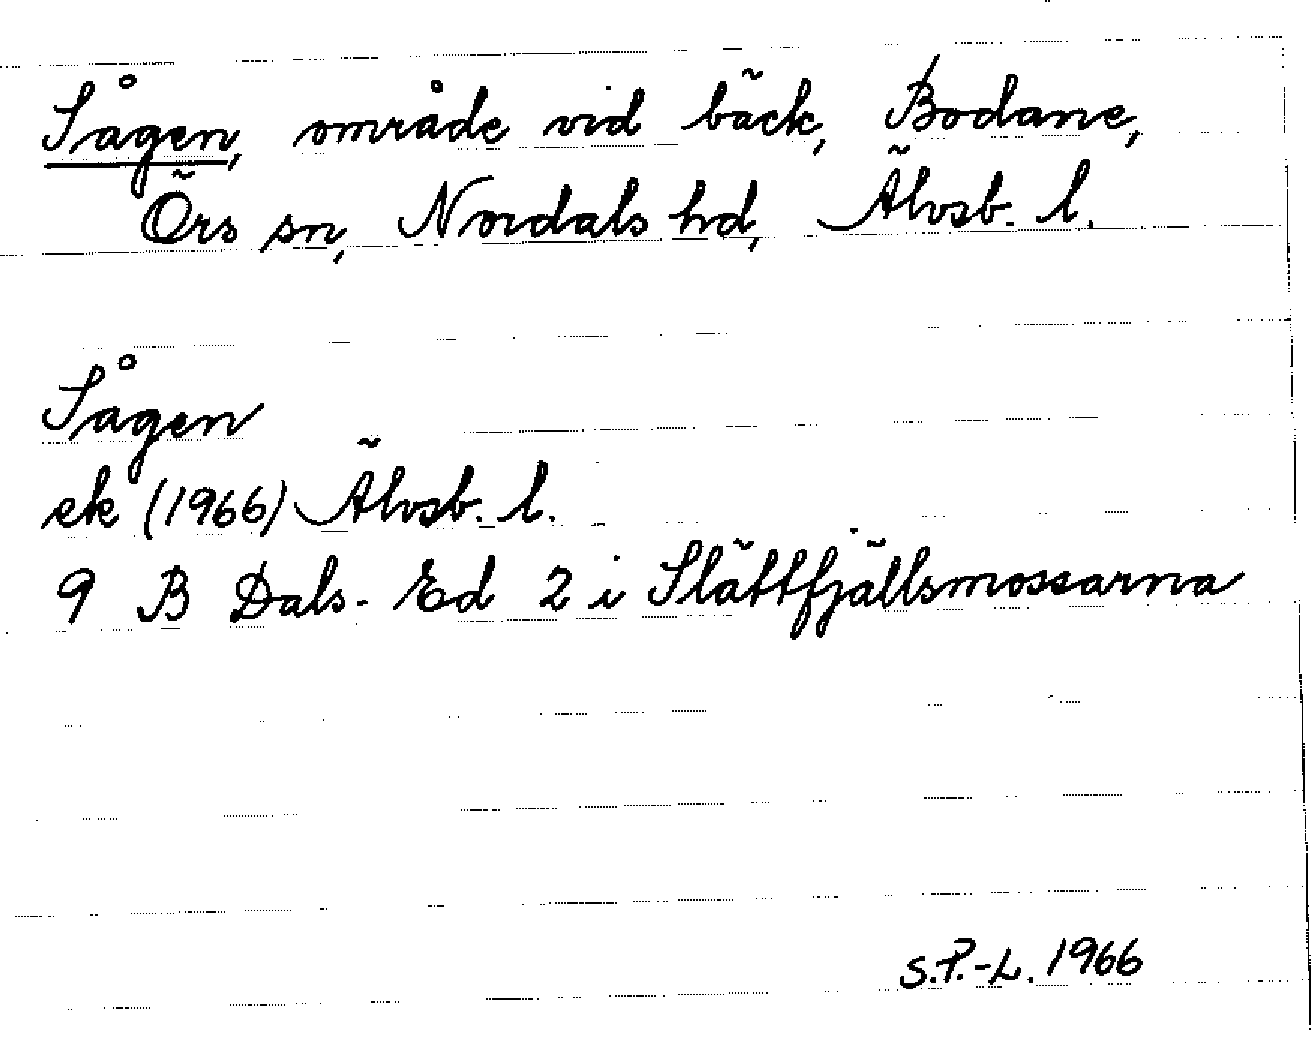 Sågen, område vid bäck, Bodane,
Örs sn, Nordals hd, Älvsb. l.
Sågen
ek (1966) Älvsb. l.
9 B Dals-Ed 2 i Slättfjällsmossarna
S.P.-L. 1966